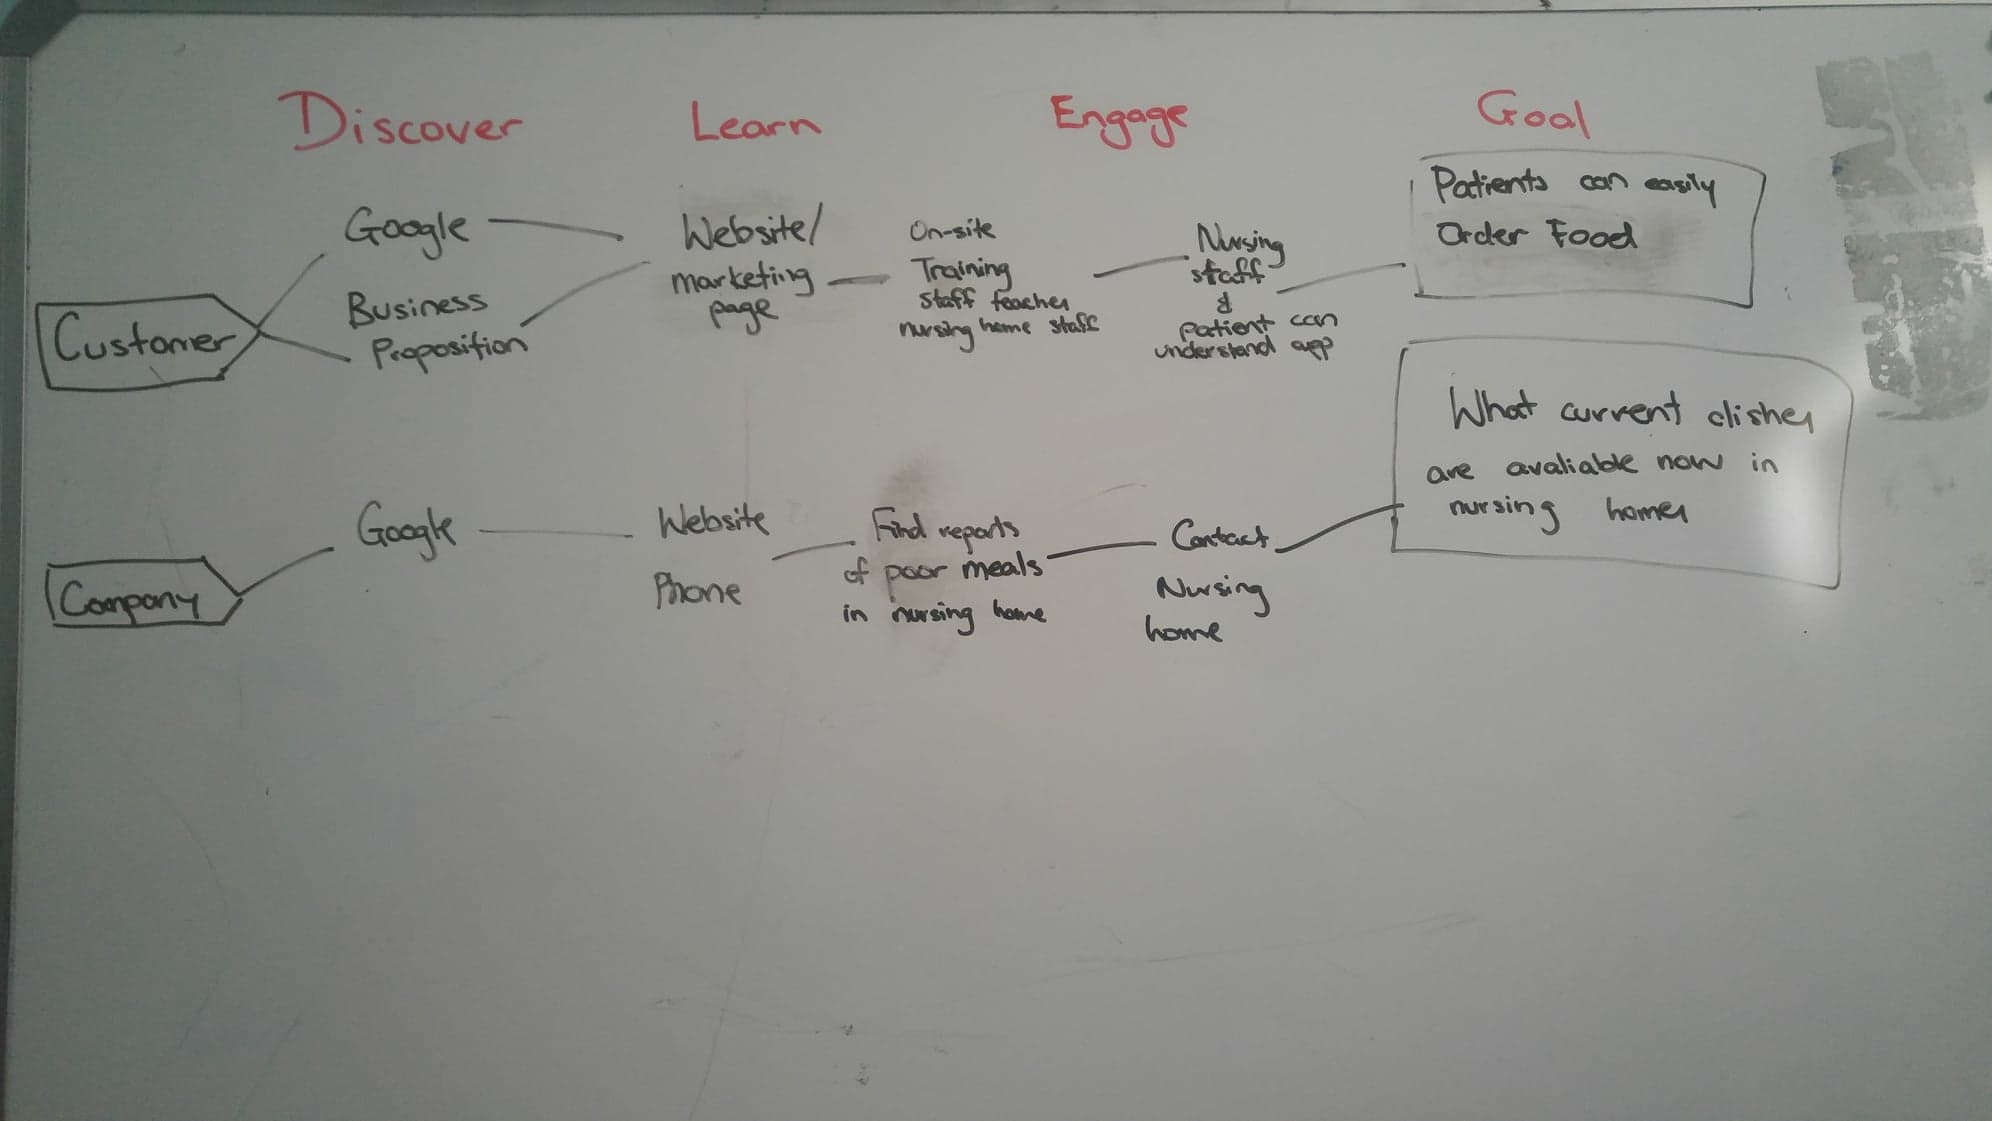 Discover Learn Engage Goal
Customer
Google
Business
Proposition
Website/
marketing
page
On-site
Training
Staff teaches
nursing home staff
Nursing
staff
&
patient can
understand app
Patients can easily
Order Food
Company
Google
Website
Phone
Find reports
of poor meals
in nursing home
Contact
Nursing
home
What current dishes
are avaliable now in
nursing homes